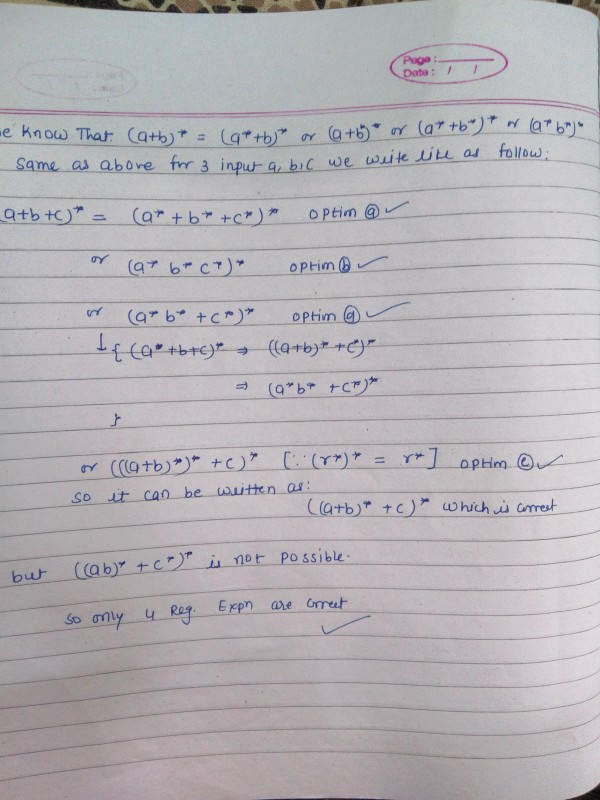 Page :
Date : / /
e know That (a+b)* = (a*+b)* or (a+b)* or (a*+b*)* or (a*b*)*
Same as above for 3 input a, b, c we write like as follow:
a+b+c)* = (a* + b* + c*)* option ⓐ ✓
or (a* b* c*)* option ⓑ ✓
or (a* b* + c*)* option ⓓ ✓
↓ { (a* +b+c)* ⇒ ((a+b)* + c)*
⇒ (a*b* + c*)*
}
or (((a+b)*)* + c)* [∵ (r*)* = r*] option ⓒ ✓
so it can be written as:
((a+b)* + c)* which is correct
but ((ab)* + c*)* is not possible.
so only 4 Reg. Expn are correct
✓